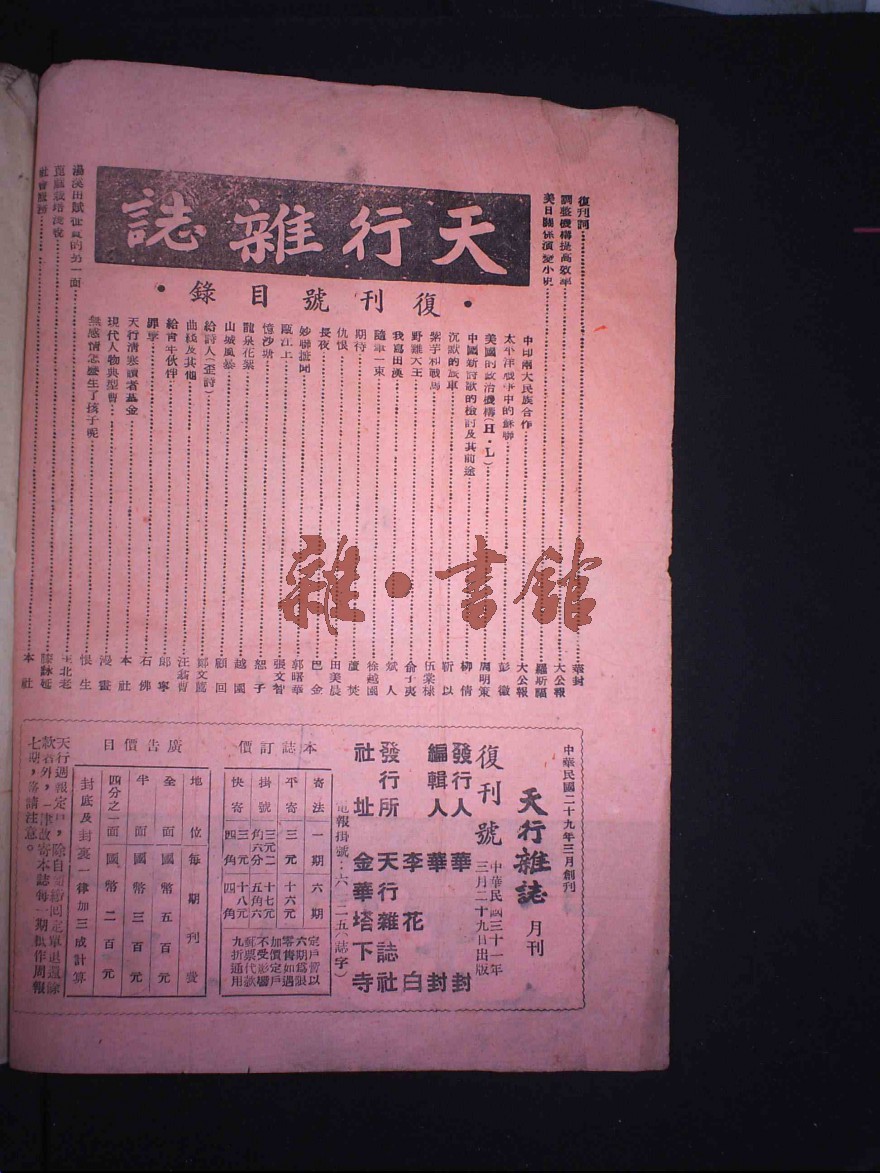 天行雜誌
·復刊號目錄·
復刊詞 華封
調整機構提高效率 大公報
美日關係演變小史 羅斯福
中印兩大民族合作 大公報
太平洋戰爭中的蘇聯 彭徽
美國的政治機構(H·L) 周明策
中國新詩歌的檢討及其前途 柳倩
沉默的旅車 靳以
紫芋和戰馬 伍棠棣
野雞大王 俞子夷
我寫田漢 斌人
隨筆一束 徐越國
期待 蘆焚
仇恨 田美晨
長夜 巴金
妙聯摭聞 郭曙華
甌江上 張文智
憶沙塘 恕子
龍泉花絮 越國
山城風暴 顧回
給詩人(歪詩) 鄭文蔭
曲綫及其他 汪蒻曹
給青年伙伴 郎寧
罪孽 石佛
天行清寒讀者基金 本社
現代人物典型曹 漫畫
無感情怎麼生了孩子呢 恨生
湯溪田賦征實的另一面 王北老
社會服務 本社
中華民國二十九年三月創刊
天行雜誌 月刊
復刊號 中華民國三十一年三月二十九日出版
發行人 華封
編輯人 華封 李花白
發行所 天行雜誌社
社址 金華塔下寺
電報掛號:六一三二五(誌字)
本誌訂價
寄法 一期 六期
平寄 三元 十六元
掛號 三元二角六分 十七元五角六
快寄 三元四角 十八元四角
定戶暫以六期為限零售如遇加價定戶不受影響郵票代款九折通用
廣告價目
地位 每期刊費
全面 國幣五百元
半面 國幣三百元
四分之一面 國幣二百元
封底及封裏一律加三成計算
天行週報定戶,除自動繳回定單退還餘款者外,一律改寄本誌每一期抵作周報七期,希請注意。
雜·書館